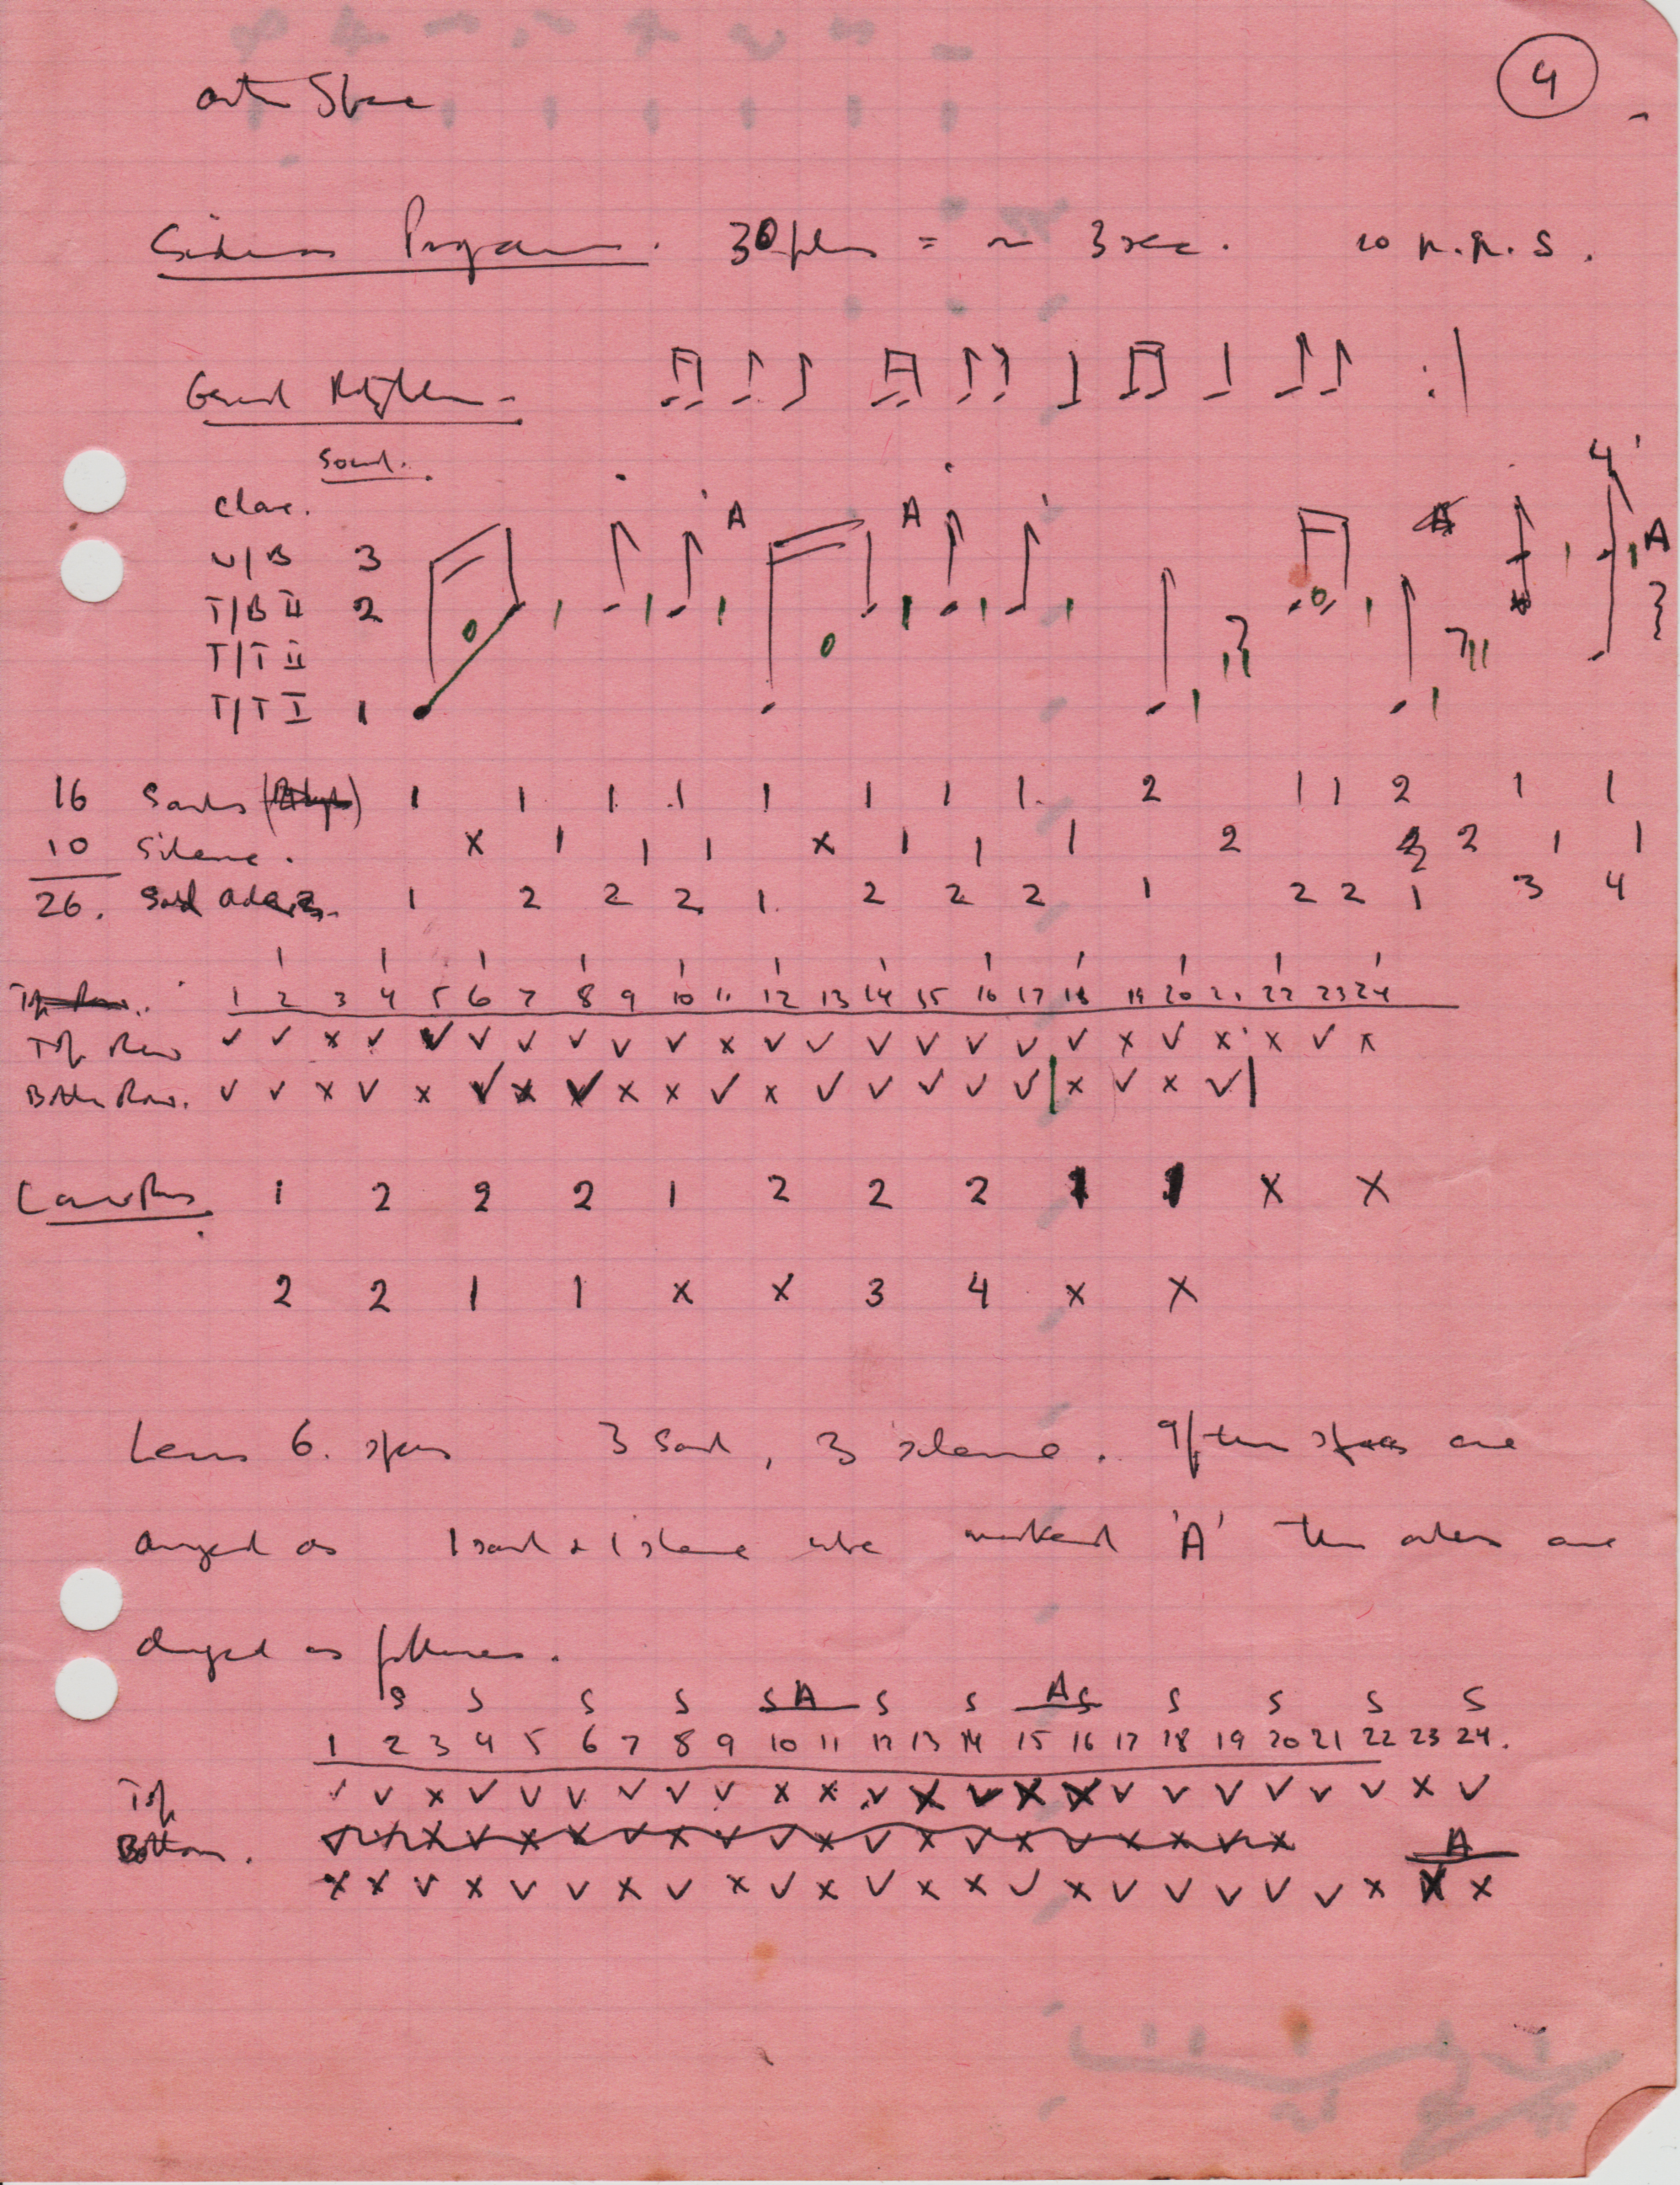 4
Outer Space
Program. 30 pls = ~ 3 sec. 10 p.p.s.
General Rhythm.
Sound.
Clave.
W/B 3
T/B II 2
T/T II
T/T I 1
A A A 4 A
0 1 1 1 0 1 1 1 1 0 1 1 1 1
16 Sounds 1 1 1 1 1 1 1 1 2 1 1 2 1 1
10 Silence. x 1 1 1 x 1 1 1 2 2 1 1
26. Sound 1 2 2 2 1 2 2 2 1 2 2 1 3 4
1 1 1 1 1 1 1 1 1 1 1 1
Top Row. 1 2 3 4 5 6 7 8 9 10 11 12 13 14 15 16 17 18 19 20 21 22 23 24
Top Row ✓ ✓ x ✓ ✓ ✓ ✓ ✓ ✓ ✓ x ✓ ✓ ✓ ✓ ✓ ✓ ✓ x ✓ x x ✓ x
Bottom Row. ✓ ✓ x ✓ x ✓ x ✓ x x ✓ x ✓ ✓ ✓ ✓ ✓ | x ✓ x ✓ |
1 2 2 2 1 2 2 2 1 1 x x
2 2 1 1 x x 3 4 x x
Leaves 6 spaces 3 sound, 3 silence. If these spaces are
arranged as 1 sound & 1 silence where marked 'A' the orders are
changed as follows.
S S S S S A S S A S S S S S
1 2 3 4 5 6 7 8 9 10 11 12 13 14 15 16 17 18 19 20 21 22 23 24.
Top ✓ ✓ x ✓ ✓ ✓ ✓ ✓ ✓ x x ✓ x ✓ x x ✓ ✓ ✓ ✓ ✓ ✓ x ✓
Bottom.
A
x x ✓ x ✓ ✓ x ✓ x ✓ x ✓ x x ✓ x ✓ ✓ ✓ ✓ ✓ x x x